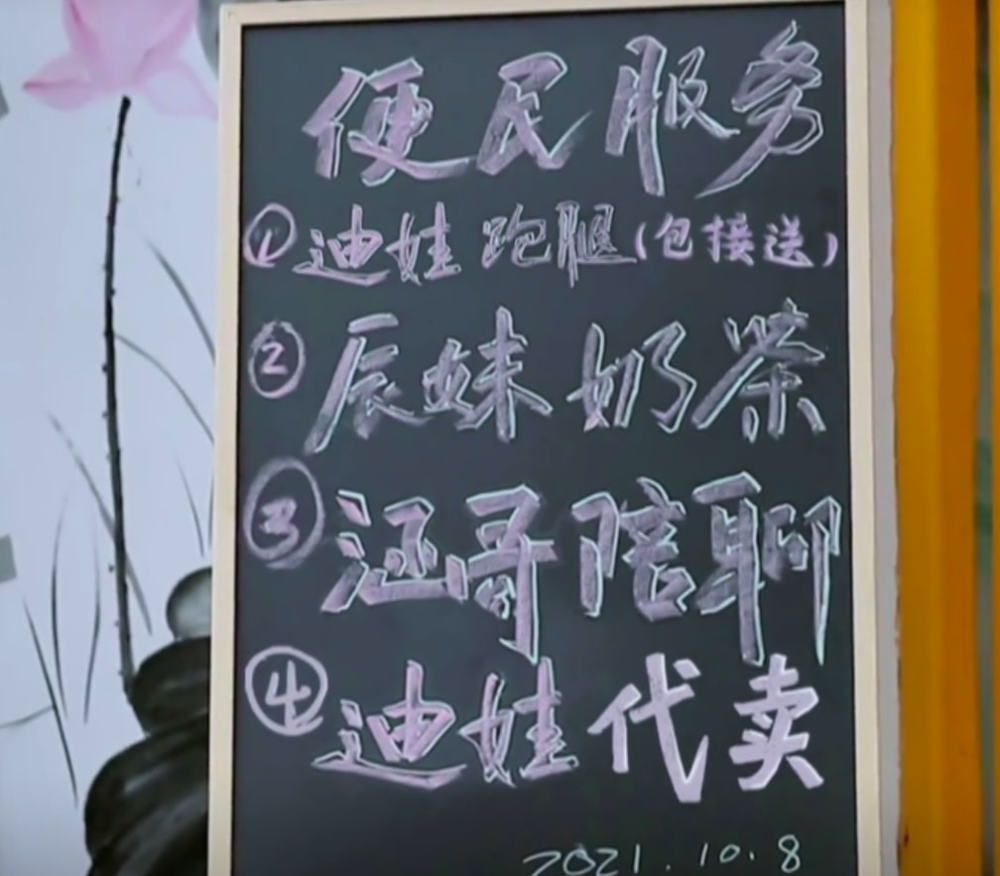 便民服务
①迪娃跑腿(包接送)
②辰妹奶茶
③涵哥陪聊
④迪娃代卖
2021.10.8